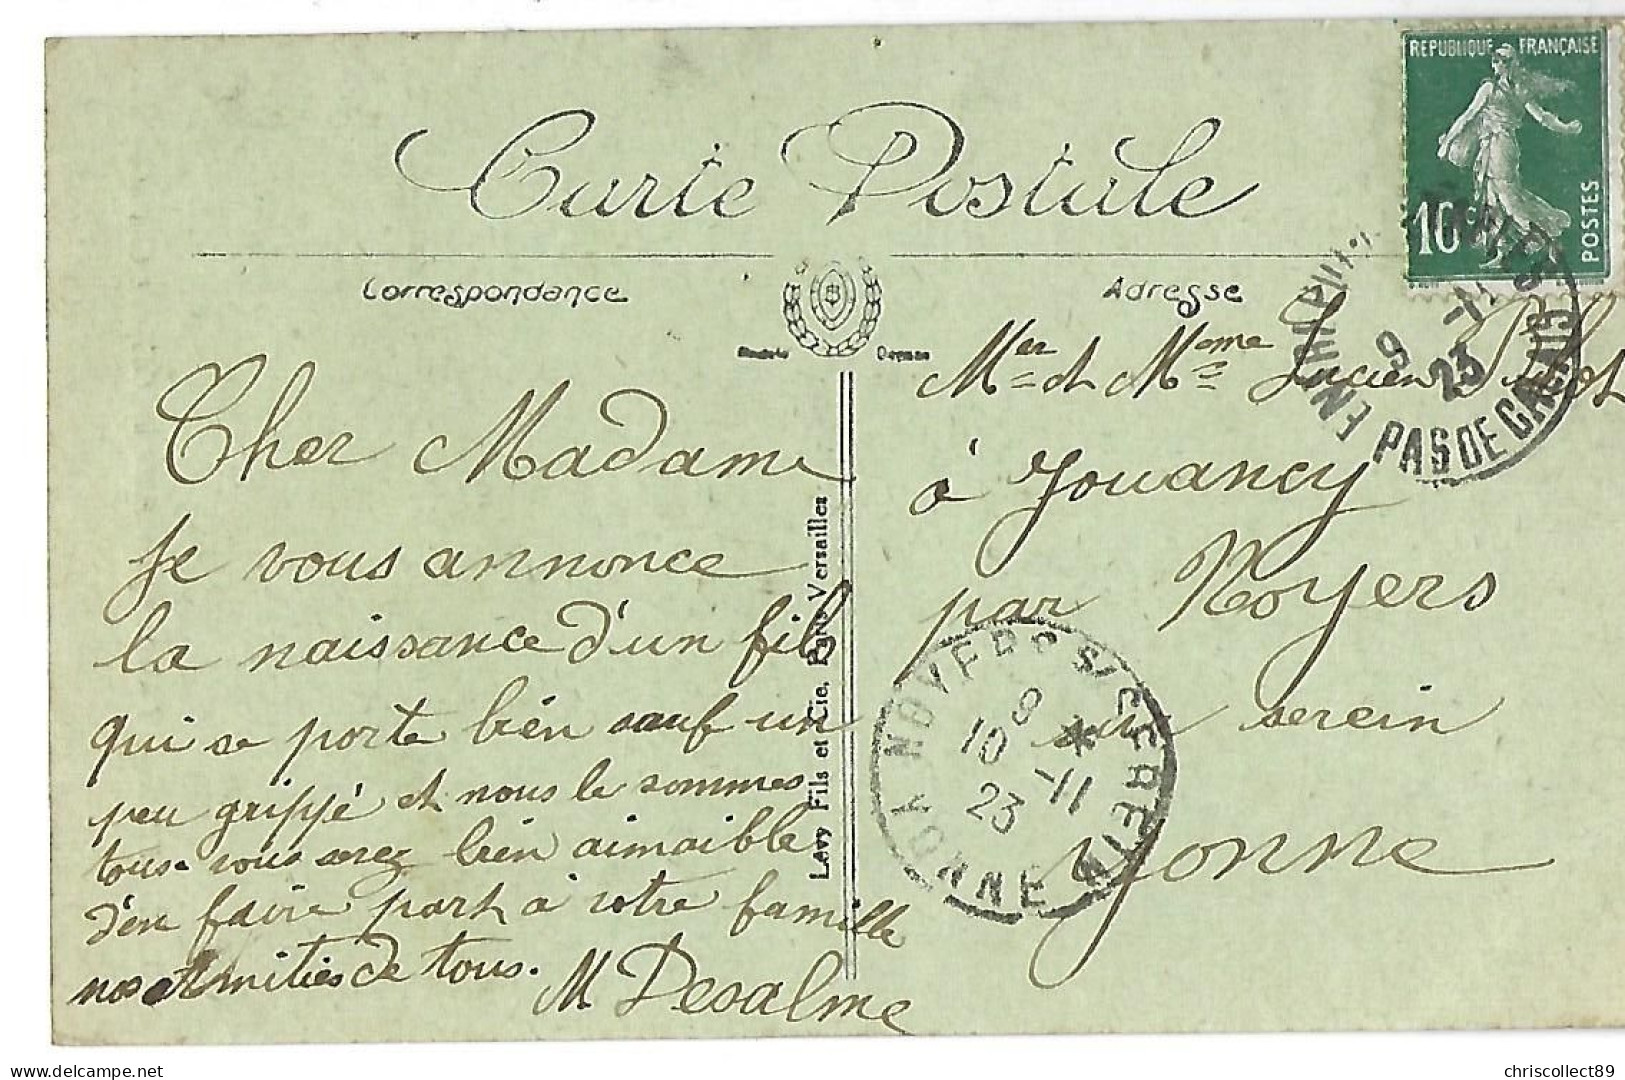 Carte Postale
REPUBLIQUE FRANÇAISE
10c
POSTES
Correspondance
Adresse
9 -11
23
PAS DE CALAIS
Mer et Mme Lucien
à Jouancy
par Noyers
sur serein
Yonne
Cher Madame
je vous annonce
la naissance d'un fils
qui se porte bien sauf un
peu grippé et nous le sommes
tous. vous serez bien aimaible
d'en faire part à votre famille
nos Amitiés de tous.
M Desalme
Lévy Fils et Cie, Paris Versailles
NOYERS S/ SEREIN
8
10 -11
23
YONNE
chriscollect89